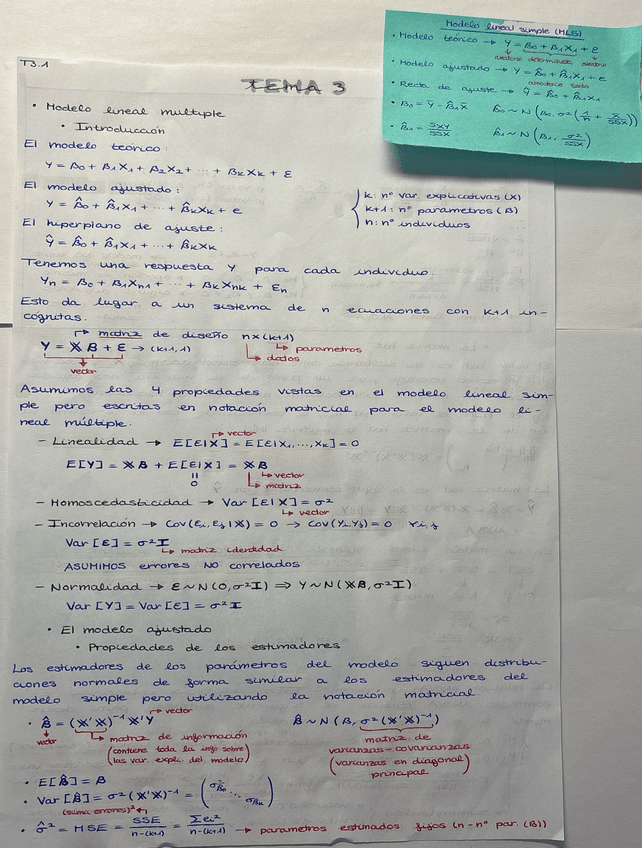 Modelo lineal simple (MLS)
• Modelo teórico → Y = β₀ + β₁X₁ + ε
aleatorio determinista aleatorio
• Modelo ajustado → Y = β̂₀ + β̂₁X₁ + e
aleatorio todo
• Recta de ajuste → Ŷ = β̂₀ + β̂₁X₁
• β̂₀ = Ȳ - β̂₁X̄ β̂₀ ~ N(β₀, σ²(1/n + X̄/SSX))
• β̂₁ = SXY/SSX β̂₁ ~ N(β₁, σ²/SSX)
T3.1
TEMA 3
• Modelo lineal multiple
• Introducción
El modelo teórico:
Y = β₀ + β₁X₁ + β₂X₂ + ... + βₖXₖ + ε
El modelo ajustado:
Y = β̂₀ + β̂₁X₁ + ... + β̂ₖXₖ + e
El hiperplano de ajuste:
Ŷ = β̂₀ + β̂₁X₁ + ... + β̂ₖXₖ
k: nº var explicativas (X)
k+1: nº parametros (β)
n: nº individuos
Tenemos una respuesta Y para cada individuo.
Yₙ = β₀ + β₁Xₙ₁ + ... + βₖXₙₖ + εₙ
Esto da lugar a un sistema de n ecuaciones con k+1 in-
cógnitas.
↱ matriz de diseño nx(k+1)
Y = 𝕏 β + ε → (k+1,1)
↳ parametros
↳ datos
vector
Asumimos las 4 propiedades vistas en el modelo lineal sim-
ple pero escritas en notación matricial para el modelo li-
neal múltiple.
↱ vector
- Linealidad → E[ε|𝕏] = E[ε|X₁,...,Xₖ] = 0
E[Y] = 𝕏β + E[ε|𝕏] = 𝕏β
"
0
↳ vector
↳ matriz
- Homoscedasticidad → Var[ε|𝕏] = σ²
↳ vector
- Incorrelación → Cov(εᵢ,εⱼ|𝕏) = 0 → Cov(Yᵢ,Yⱼ) = 0 ∀i,j
Var[ε] = σ²I
↳ matriz identidad
ASUMIMOS errores NO correlados
- Normalidad → ε ~ N(0,σ²I) ⇒ Y ~ N(𝕏β,σ²I)
Var[Y] = Var[ε] = σ²I
• El modelo ajustado
• Propiedades de los estimadores
Los estimadores de los parámetros del modelo siguen distribu-
ciones normales de forma similar a los estimadores del
modelo simple pero utilizando la notación matricial.
↱ vector
• β̂ = (𝕏'𝕏)⁻¹𝕏'Y β̂ ~ N(β, σ²(𝕏'𝕏)⁻¹)
vector
↳ matriz de información
(contiene toda la info sobre
las var. expli. del modelo)
matriz de
varianzas-covarianzas
(varianzas en diagonal
principal)
• E[β̂] = β
• Var[β̂] = σ²(𝕏'𝕏)⁻¹ = (σ²β̂₀ ... σβ̂ₖ)
(suma errores)² ↰
• σ̂² = MSE = SSE/n-(k+1) = Σeᵢ²/n-(k+1) → parametros estimados fijos (n - nº par (β))